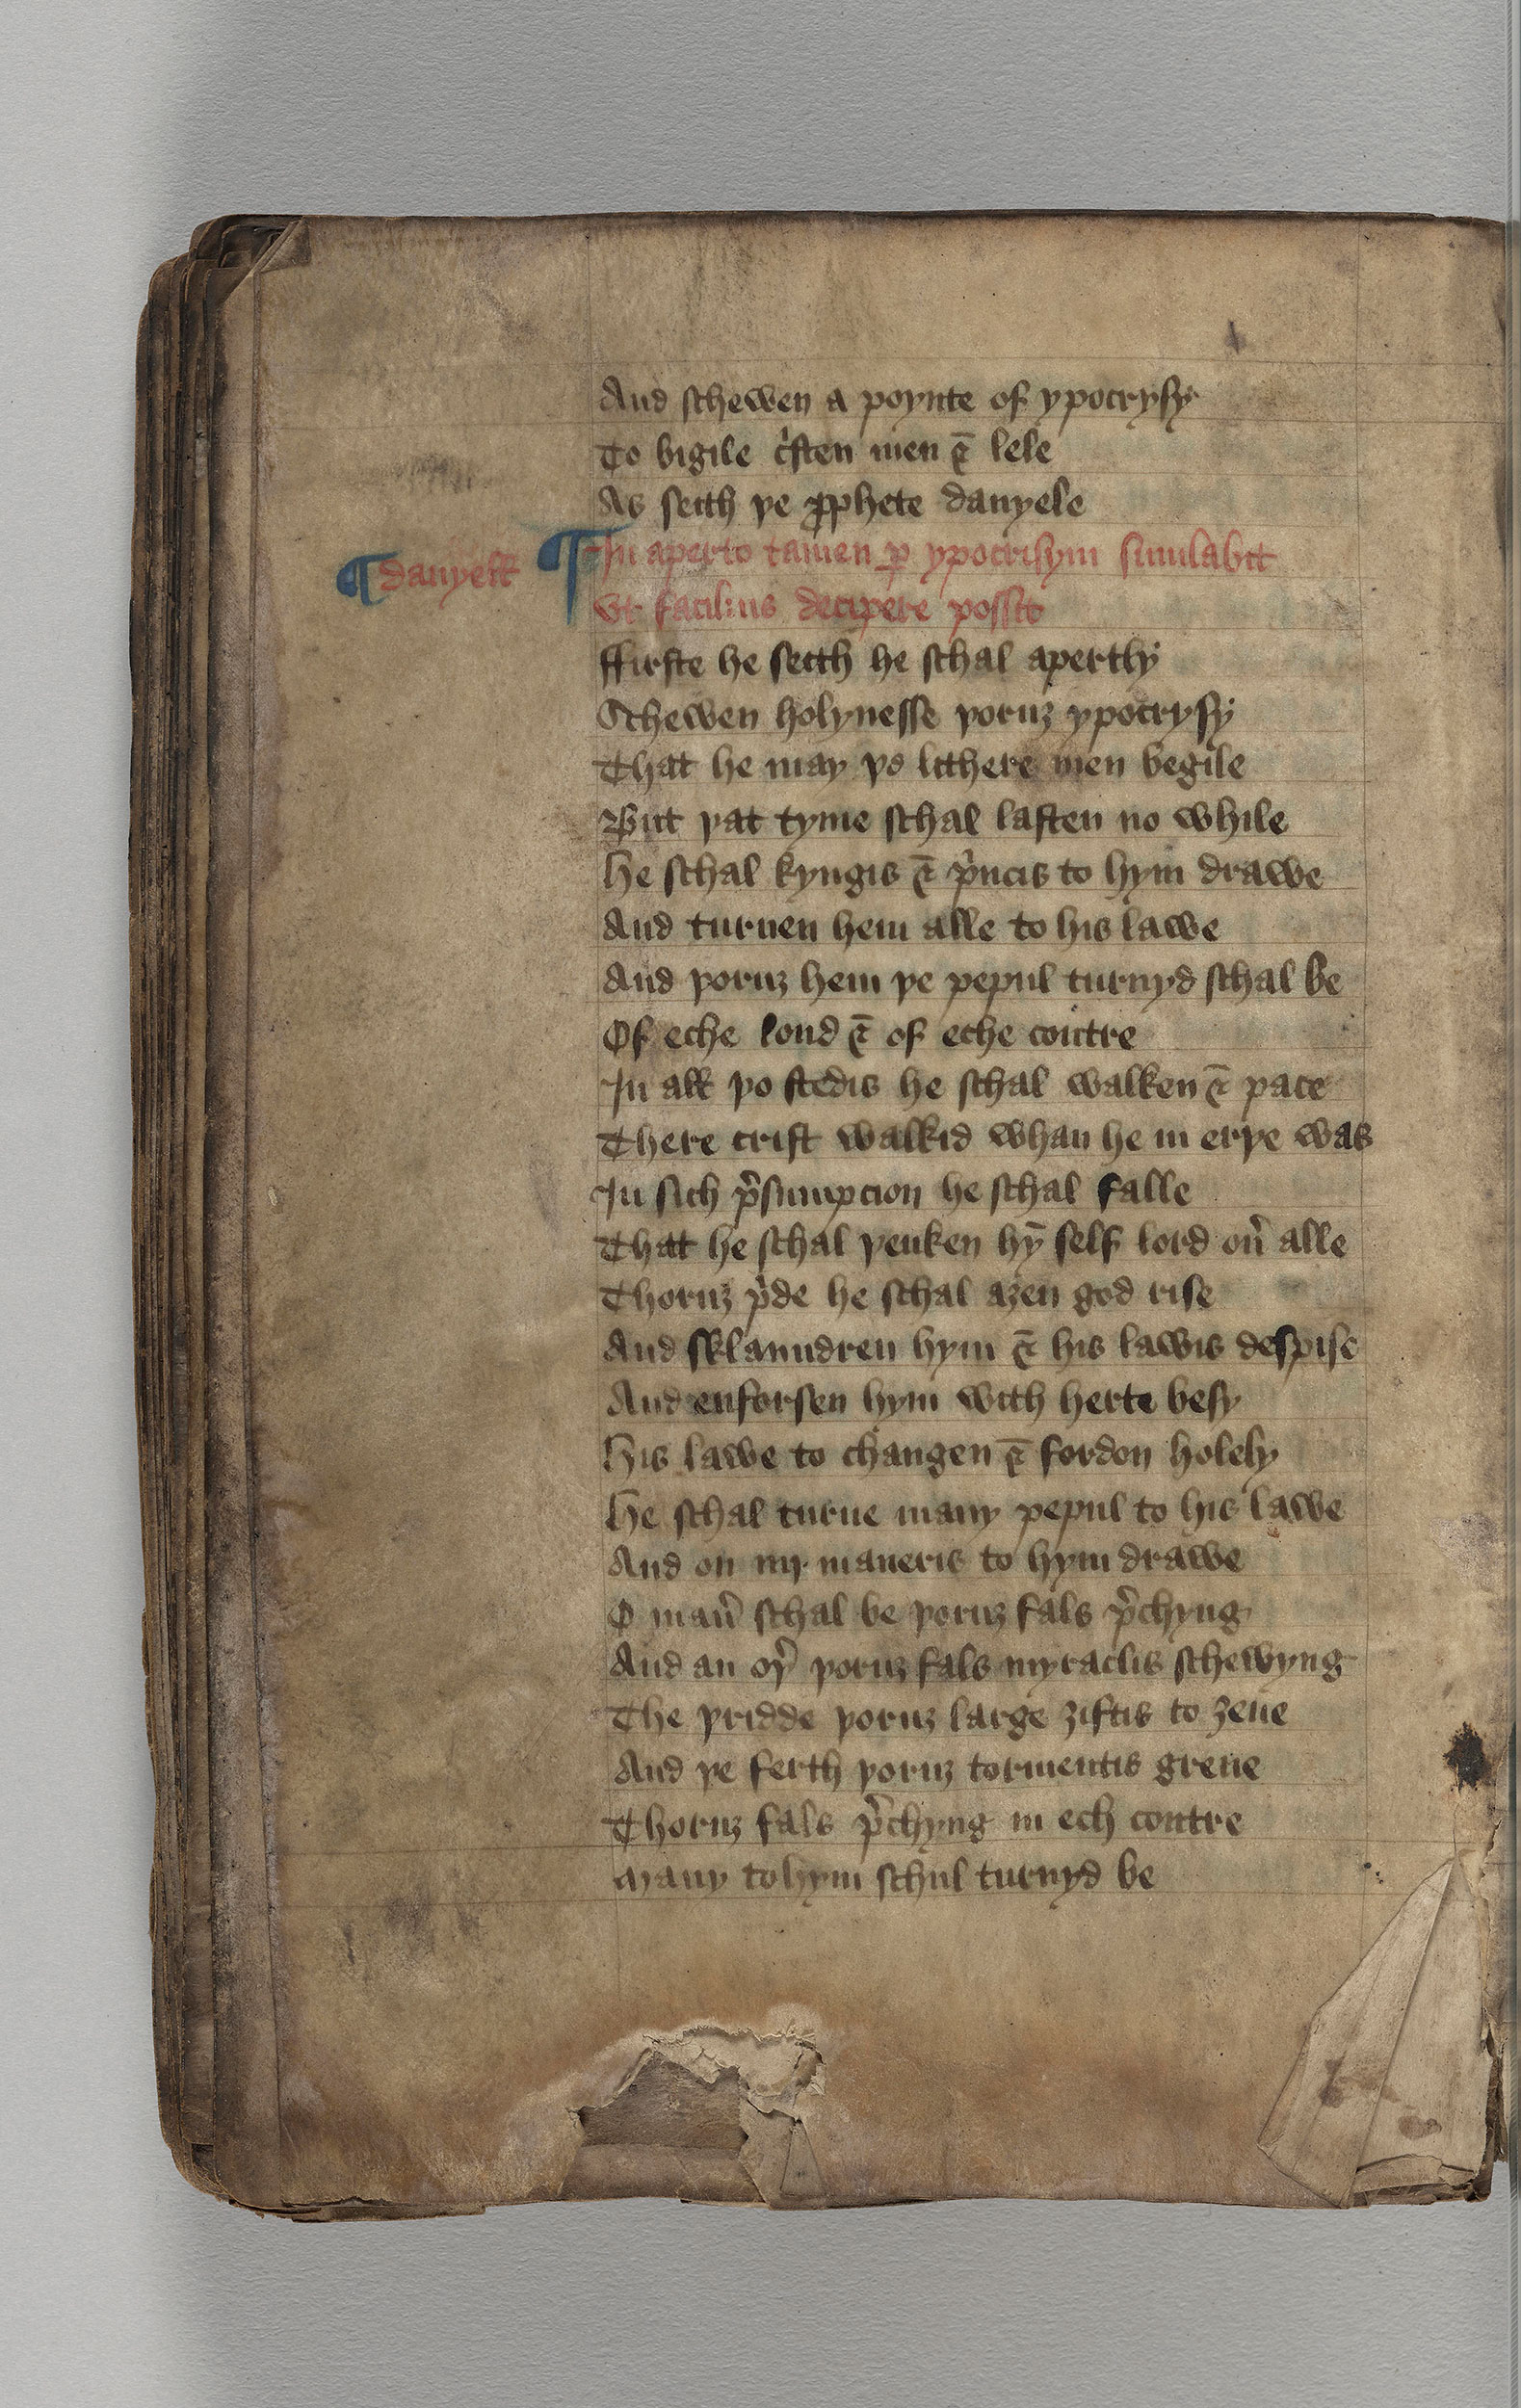 And schewen a poynte of ypocrysy
To bigile c̉sten men ⁊ lele
As seith þe ꝓphete danyele
¶ danyell ¶ In aperto tamen ꝑ ypocrisym simulabit
vt facilius decipere possit
ffirste he seith he schal apertly
Schewen holynesse þoruȝ ypocrysy
That he may þo lithere men begile
But þat tyme schal lasten no while
He schal kyngis ⁊ p̉ncis to hym drawe
And turnen hem alle to his lawe
And þoruȝ hem þe pepul turnyd schal be
Of eche lond ⁊ of eche contre
In all þo stedis he schal walken ⁊ pace
There crist walkid whan he in erþe was
In sich p̉sumpcion he schal falle
That he schal þenken hȳ self lord oủ alle
Thoruȝ p̉de he schal aȝen god rise
And sklaundren hym ⁊ his lawis despise
And enforsen hym with herte besy
His lawe to changen ⁊ fordon holely
He schal turne many pepul to his lawe
And on iiij maneris to hym drawe
O man̉ schal be þoruȝ fals p̉chyng
And an oþ̉ þoruȝ fals myraclis schewyng
The þridde þoruȝ large ȝiftis to ȝeue
And þe ferth þoruȝ tormentis greue
Thoruȝ fals p̉chyng in ech contre
Many to hym schul turnyd be